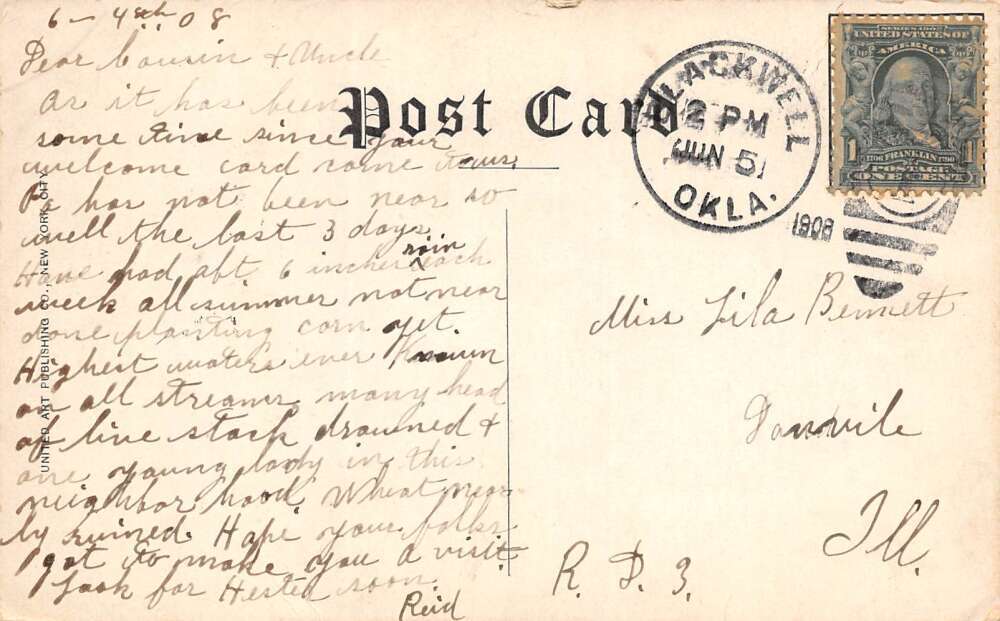 6 - 4th 08
Dear Cousin & Uncle
As it has been
some time since your
welcome card came to us.
Pa has not been near so
well the last 3 days.
Have had abt 6 inches rain each
week all summer not near
done planting corn yet.
Highest waters ever Known
on all streams many head
of live stock drowned &
one young lady in this
neighbor hood. Wheat near
ly ruined. Hope your folks
got to make you a visit.
Look for Hester soon.
Reid
Post Card
UNITED ART PUBLISHING CO., NEW YORK CITY
BLACKWELL
12 PM
JUN 5
OKLA.
1908
SERIES 1902
UNITED STATES OF
AMERICA
1 1
1706 FRANKLIN 1790
POSTAGE
ONE CENT
Miss Lila Bennett
Danvile
Ill.
R. D. 3.